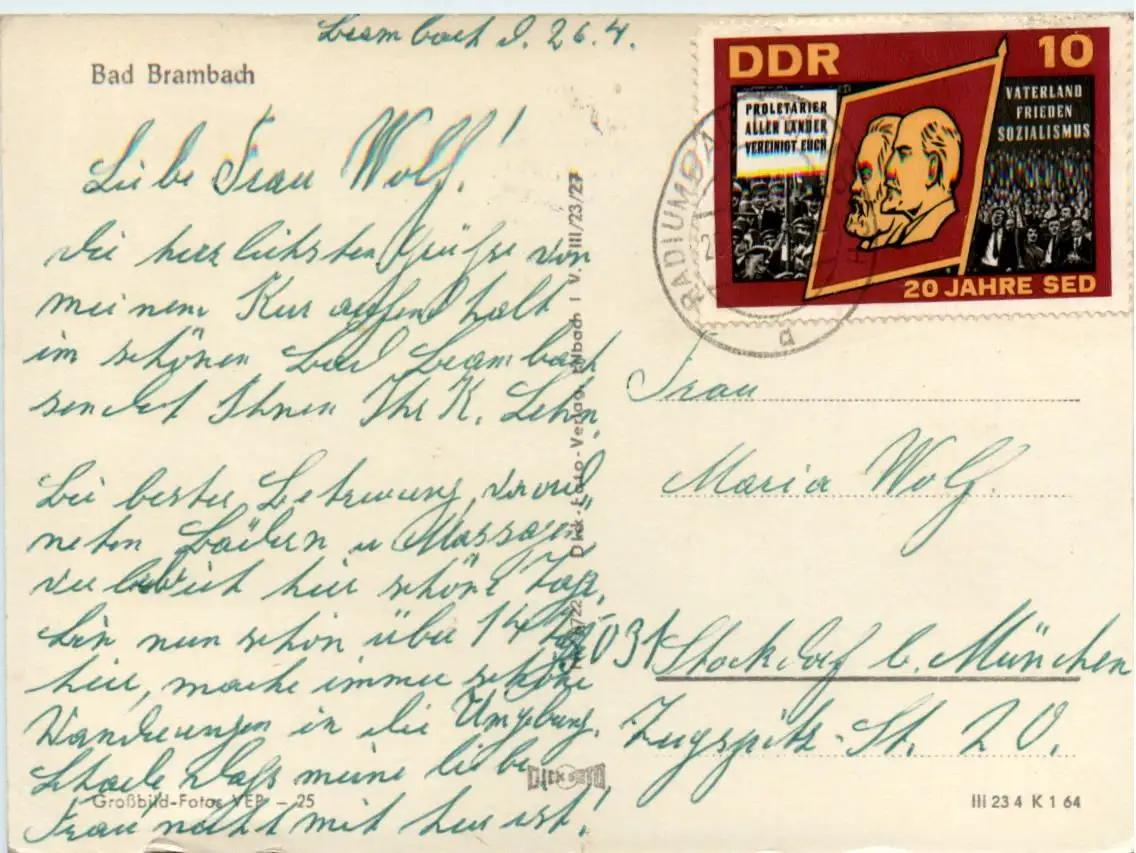 Brambach d. 26.4.
Bad Brambach
Liebe Frau Wolf!
Die herzlichsten Grüße von
meinem Kuraufenthalt
im schönen Bad Brambach
sendet Ihnen Ihr K. Lehn.
Bei bester Betreuung, verord
neten Bädern u Massagen,
verleb ich hier schöne Tage,
bin nun schon über 14
hier, mache immer schöne
Wanderungen in die Umgebung.
Schade daß meine liebe
Frau nicht mit hier ist!
Großbild-Fotos VEP – 25
DICK FOTO
Dick-Foto-Verlag, Erlbach i V. III/23/27
DDR 10
PROLETARIER
ALLER LÄNDER
VEREINIGT EUCH
VATERLAND
FRIEDEN
SOZIALISMUS
20 JAHRE SED
RADIUMBAD
a
Frau
Maria Wolf.
8031 Stockdorf b. München
Zugspitz-St. 20.
III 23 4 K 1 64